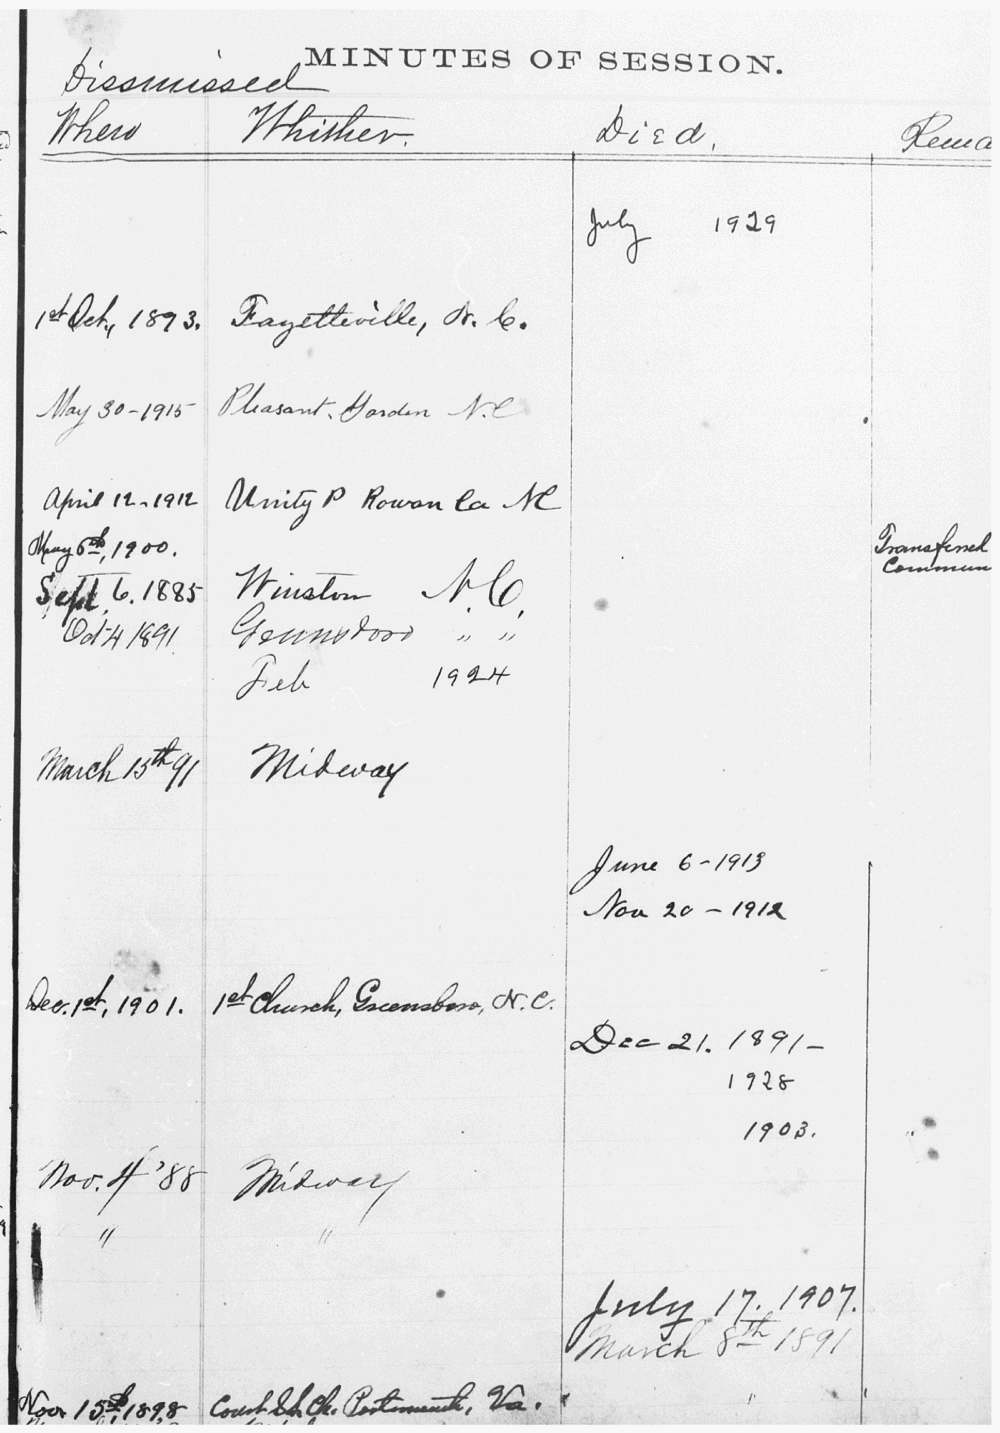 MINUTES OF SESSION.
Dissmissed
When Whither. Died. Rema
July 1929
1st Oct, 1893. Fayetteville, N. C.
May 30-1915 Pleasant Garden N.C
April 12-1912 Unity P Rowan Co NC
May 6th, 1900. Transferred
Commun
Sept. 6. 1885 Winston N.C.
Oct 4 1891. Greensboro " "
Feb 1924
March 15th 91 Midway
June 6-1913
Nov 20-1912
Dec. 1st, 1901. 1st Church, Greensboro, N.C.
Dec 21. 1891-
1928
1903.
Nov. 4 '88 Midway
" "
July 17. 1907.
March 8th 1891
"
Nov. 15th, 1898 Court St. Ch. Portsmouth, Va.